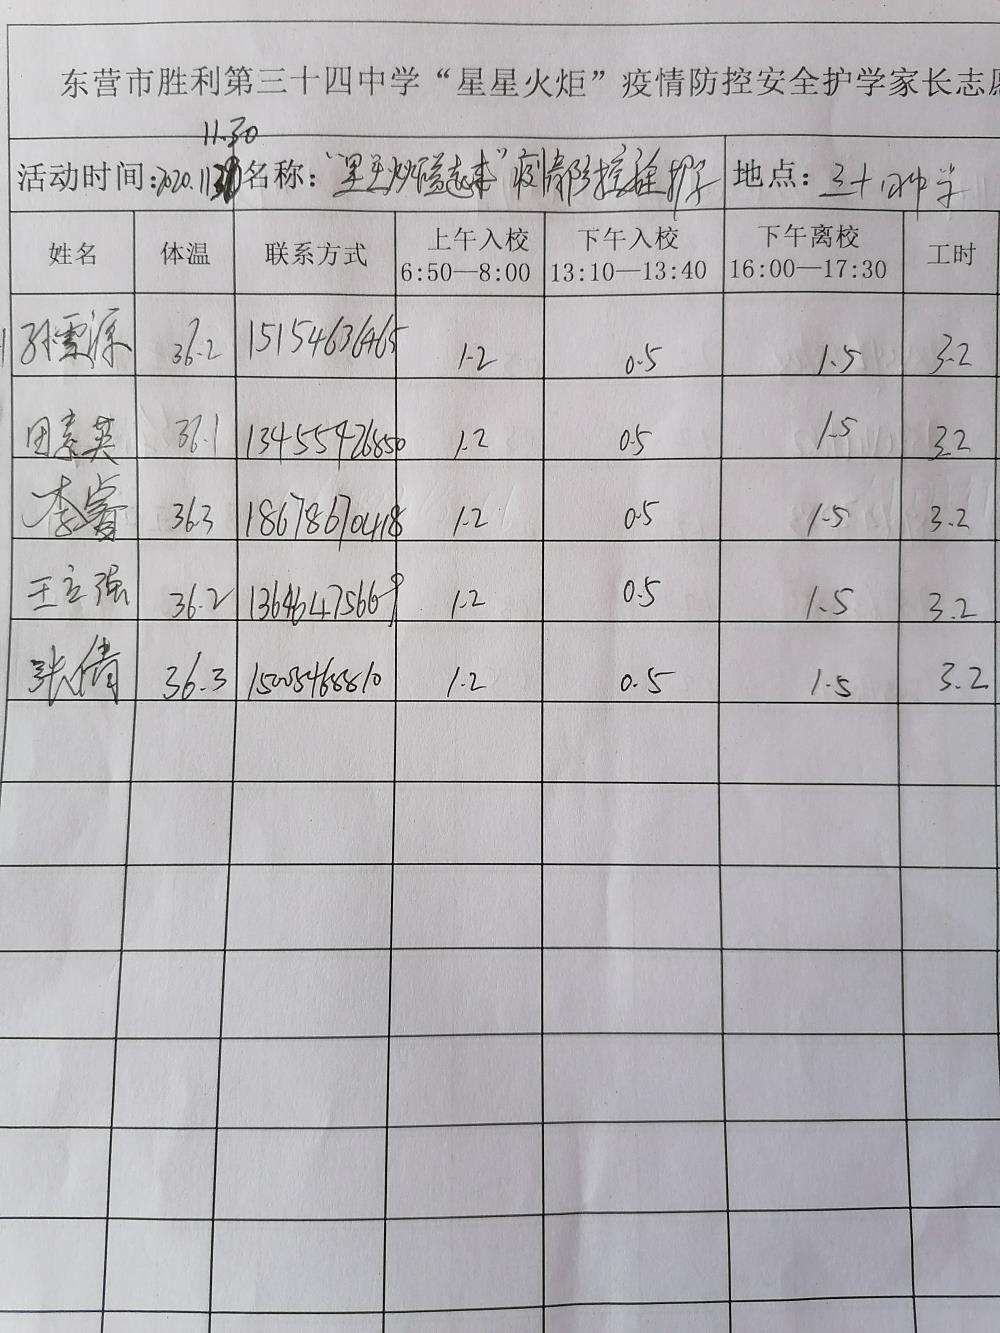 东营市胜利第三十四中学“星星火炬”疫情防控安全护学家长志愿
11.30
活动时间:2020.11 名称: 疫情防控 护学 地点: 三十四中学
姓名 体温 联系方式 上午入校 6:50—8:00 下午入校 13:10—13:40 下午离校 16:00—17:30 工时
孙雪源 36.2 15154636465 1.2 0.5 1.5 3.2
田素英 36.1 13455426850 1.2 0.5 1.5 3.2
李睿 36.3 18678670418 1.2 0.5 1.5 3.2
王立强 36.2 13646475669 1.2 0.5 1.5 3.2
张倩 36.3 1.2 0.5 1.5 3.2